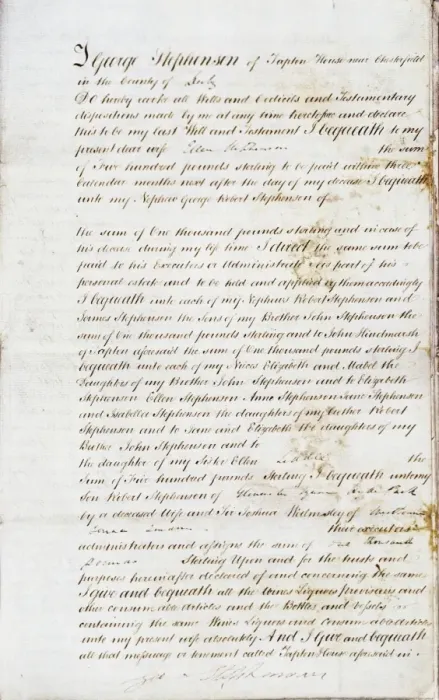 I George Stephenson of Tapton House near Chesterfield
in the County of Derby
Do hereby revoke all Wills and Codicils and Testamentary
dispositions made by me at any time heretofore and declare
this to be my last Will and Testament I bequeath to my
present dear wife Ellen Stephenson the sum
of Five hundred pounds sterling to be paid within three
Calendar months next after the day of my decease I bequeath
unto my Nephew George Robert Stephenson of
the sum of One thousand pounds sterling and in case of
his decease during my life time I direct the same sum to be
paid to his Executors or Administrators as part of his
personal estate and to be held and applied by them accordingly
I bequeath unto each of my Nephews Robert Stephenson and
James Stephenson the Sons of my Brother John Stephenson the
sum of One thousand pounds sterling and to John Hindmarsh
of Tapton aforesaid the sum of One thousand pounds sterling I
bequeath unto each of my Nieces Elizabeth and Mabel the
Daughters of my Brother John Stephenson and to Elizabeth
Stephenson Ellen Stephenson Anne Stephenson Jane Stephenson
and Isabella Stephenson the daughters of my Brother Robert
Stephenson and to Jane and Elizabeth the daughters of my
Brother John Stephenson and to
the daughter of my Sister Ellen the
Sum of Five hundred pounds Sterling I bequeath unto my
Son Robert Stephenson of Gloucester Square Hyde Park
by a deceased Wife and Sir Joshua Walmsley of
their executors
administrators and assigns the sum of One thousand
pounds Sterling Upon and for the trusts and
purposes hereinafter declared of and concerning the same
I give and bequeath all the Wines Liquors provisions and
other consumable articles and the Bottles and vessels
containing the same Wines Liquors and consumable articles
unto my present wife absolutely And I Give and bequeath
all that messuage or tenement called Tapton House aforesaid in
Stephenson